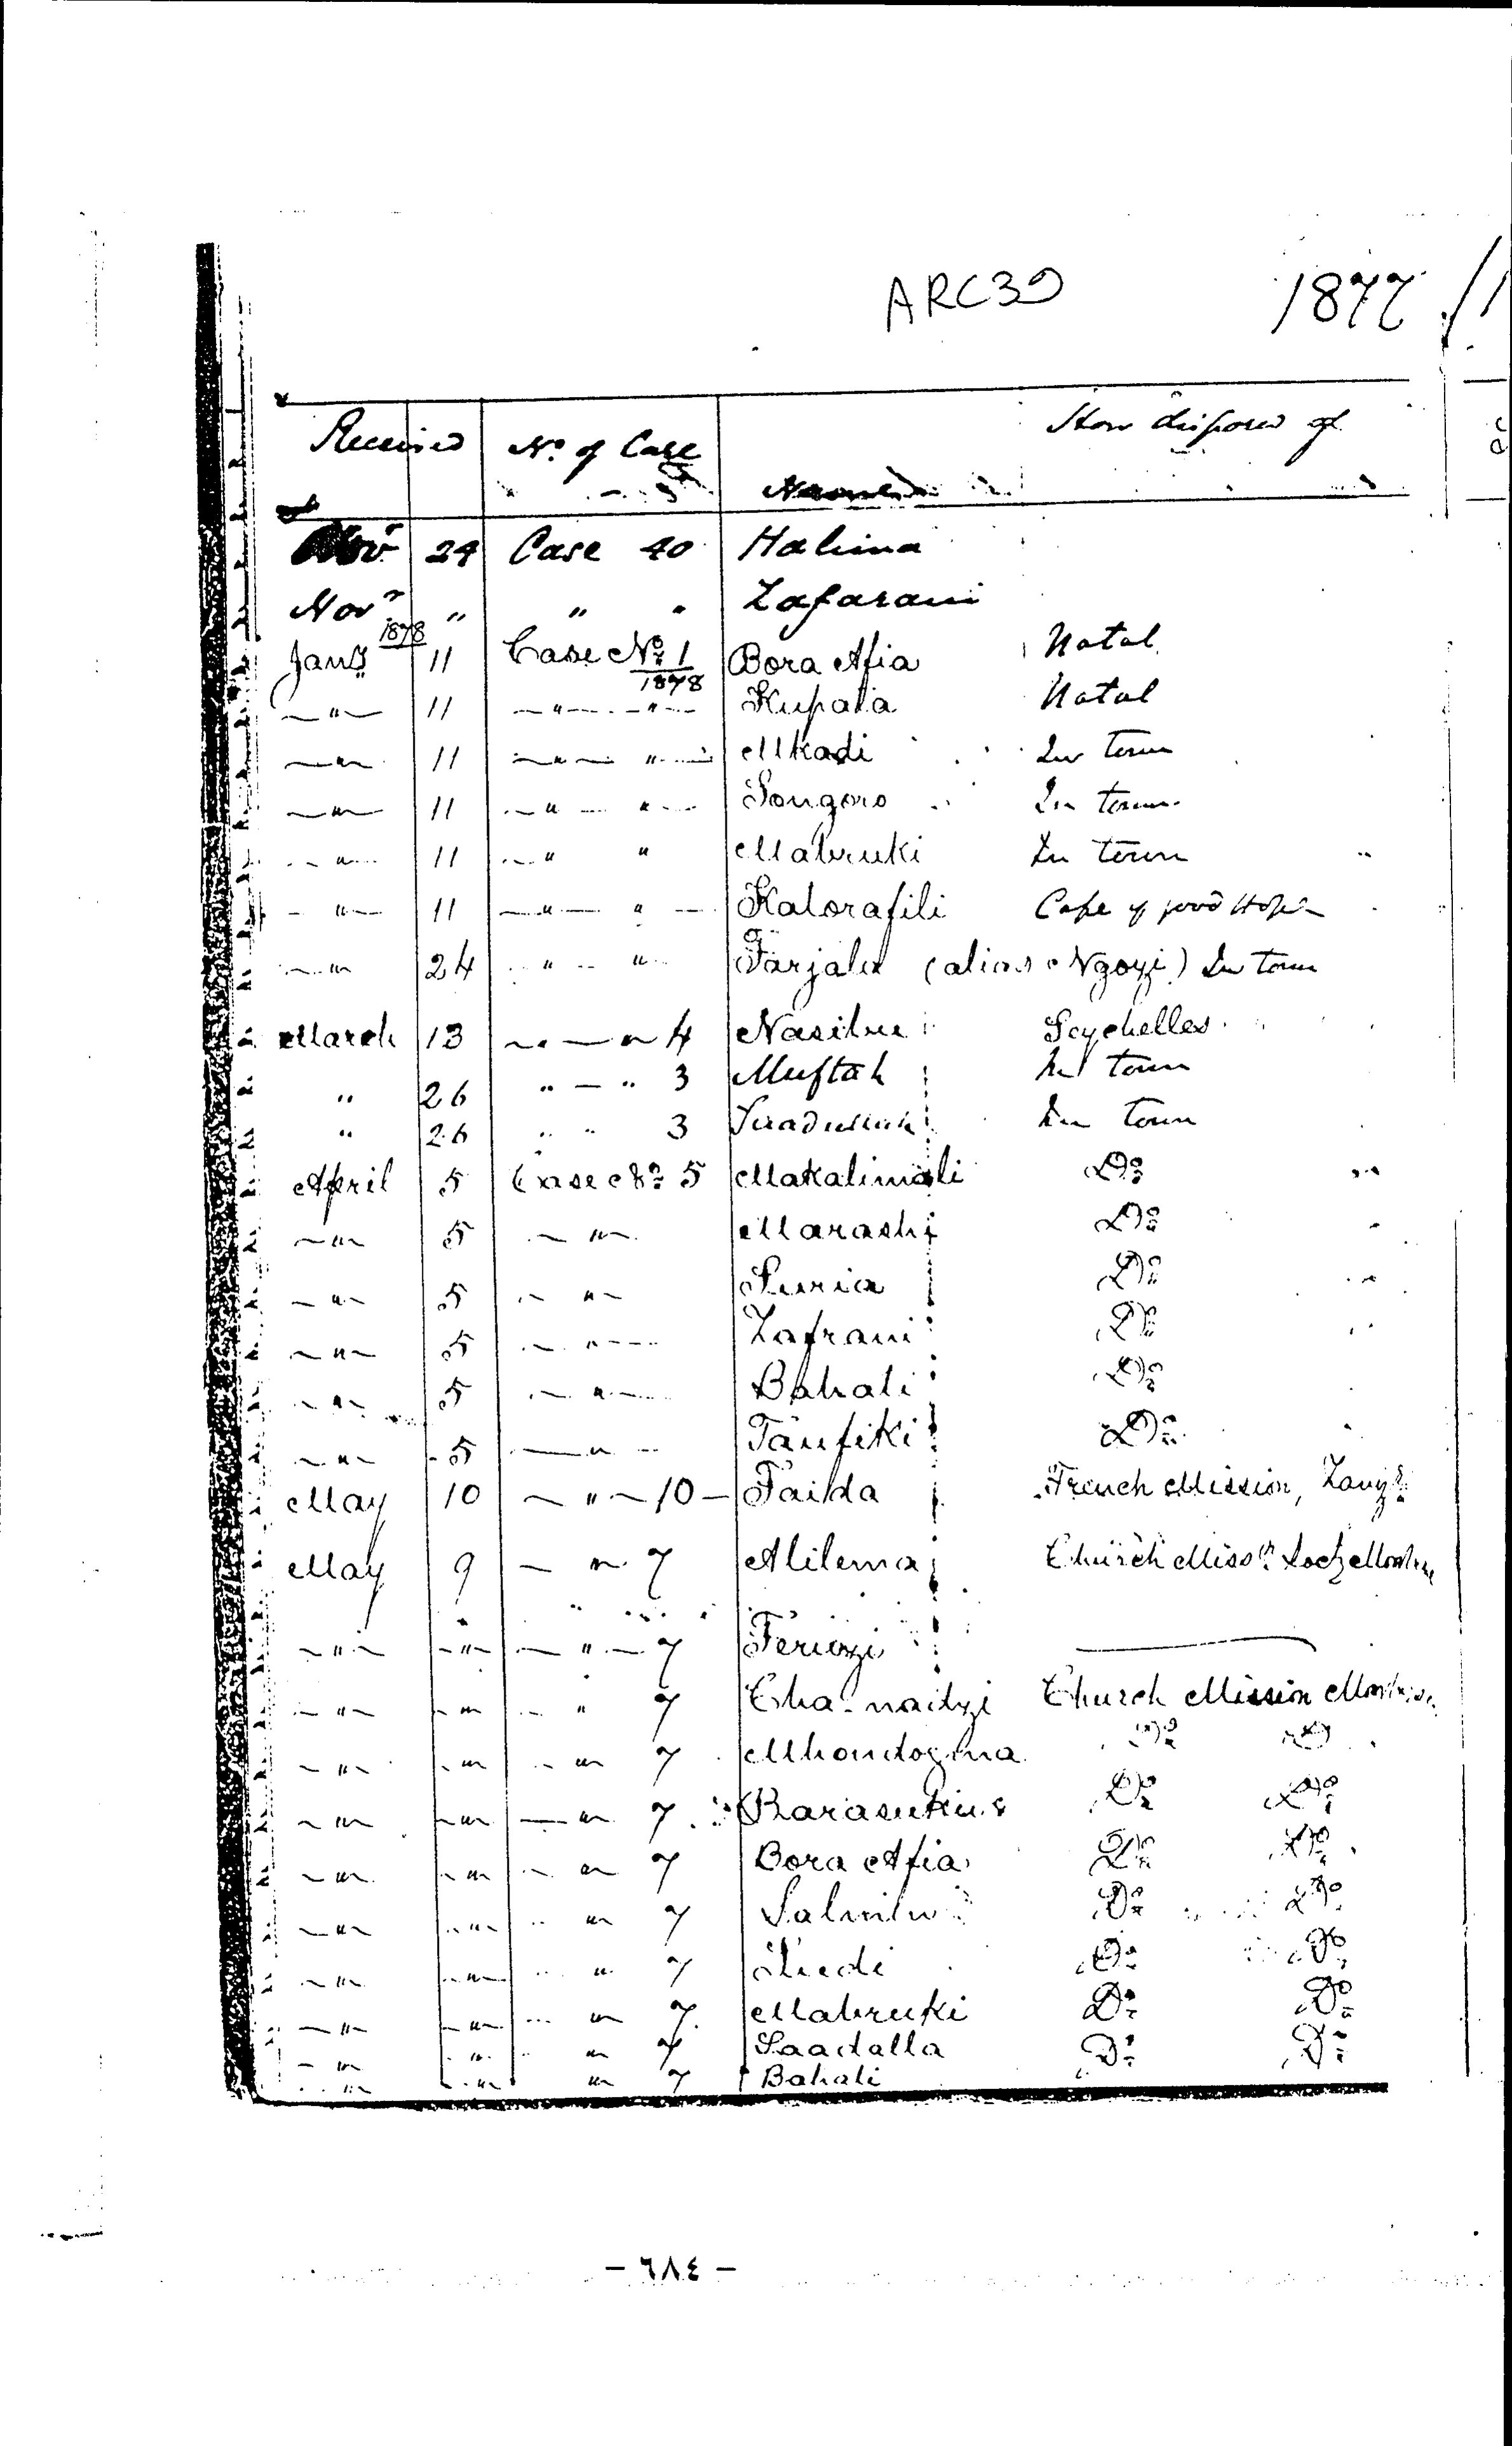 ARC39 1877
Received No. of Case Names How disposed of
Nov 24 Case 40 Halima
Novr " " " Zafarani
1878
Jany 11 Case No. 1 Bora Afia Natal
1878
— " — 11 — " — " — Kupata Natal
— " — 11 — " — " — Mkadi In town
— " — 11 — " — " — Songoro In town
— " — 11 — " " Mabruki In town
— " — 11 — " — " — Kalorafili Cape of good Hope
— " 24 " — " Farjala (alias Ngozi) In town
March 13 — " — " 4 Nasibu Seychelles
" 26 " — " 3 Muftah In town
" 26 " " 3 In town
April 5 Case No. 5 Makalimali Do
— " — 5 — " — Marashi Do
— " — 5 — " — Suria Do
— " — 5 — " — Zafrani Do
— " — 5 — " — Bahati Do
— " — 5 — " — Taufiki Do
May 10 — " — 10 — Faida French Mission, Zanzr
May 9 — " 7 Alilema Church Missy Socy
— " — — " — — " — 7 Feruzi ———
— " — — " — " 7 Cha-naidzi Church Mission
— " — — " — — " 7 Do Do
— " — — " — — " 7 Do Do
— " — — " — — " 7 Bora Afia Do Do
— " — — " — " 7 Do Do
— " — — " — " 7 Do Do
— " — — " — — " 7 Mabruki Do Do
— " — " " 7 Saadalla Do Do
— " — " — " 7 Bahati
- ٦٨٤ -